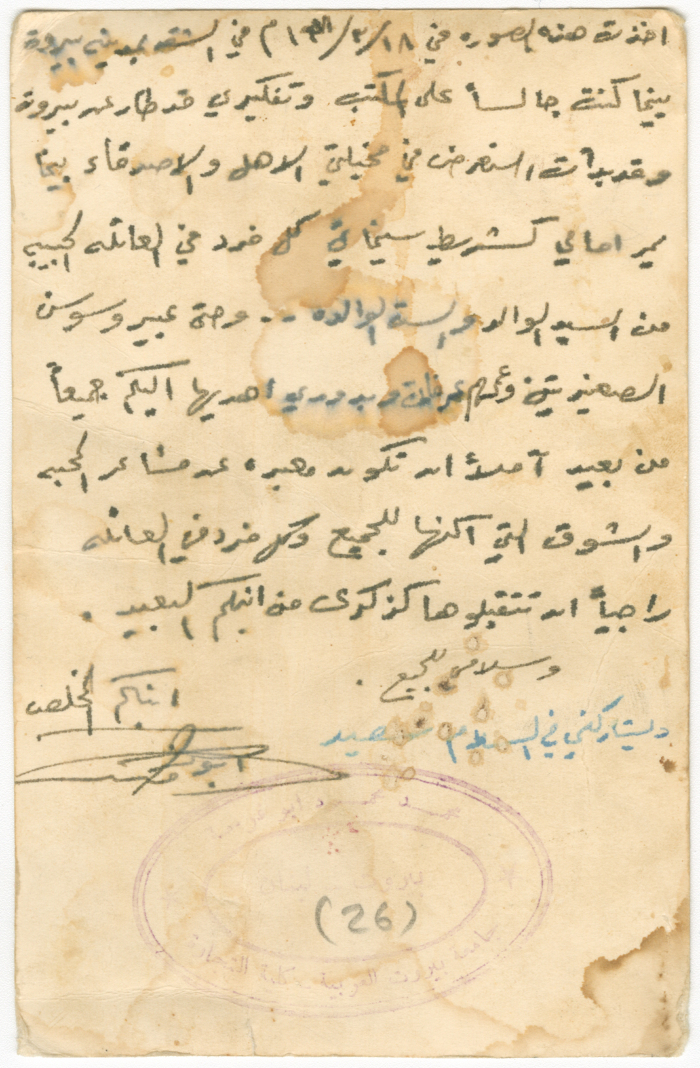 اخذت هذه الصوره في ١٨/٣/ م في الشقه بمدينة بيروت
بينما كنت جالساً على المكتب وتفكيري قد طار عن بيروت
وقد بدأت استعرض في مخيلتي الاهل والاصدقاء بينما
يمر امامي كشريط سينمائي كل فرد في العائله الحبيبه
من السيد الوالد والست الوالده .. وحتى عبير وسوسن
الصغيرتين وعمهم عرفات وبدوري اهديها اليكم جميعاً
من بعيد آملاً ان تكون معبره عن مشاعر المحبه
والشوق التي اكنها للجميع ولكل فرد في العائله
راجياً ان تتقبلوها كذكرى من ابنكم البعيد .
وسلامي للجميع .
ابنكم المخلص
ويشاركني في السلام
جامعة بيروت العربية - كلية
(26)